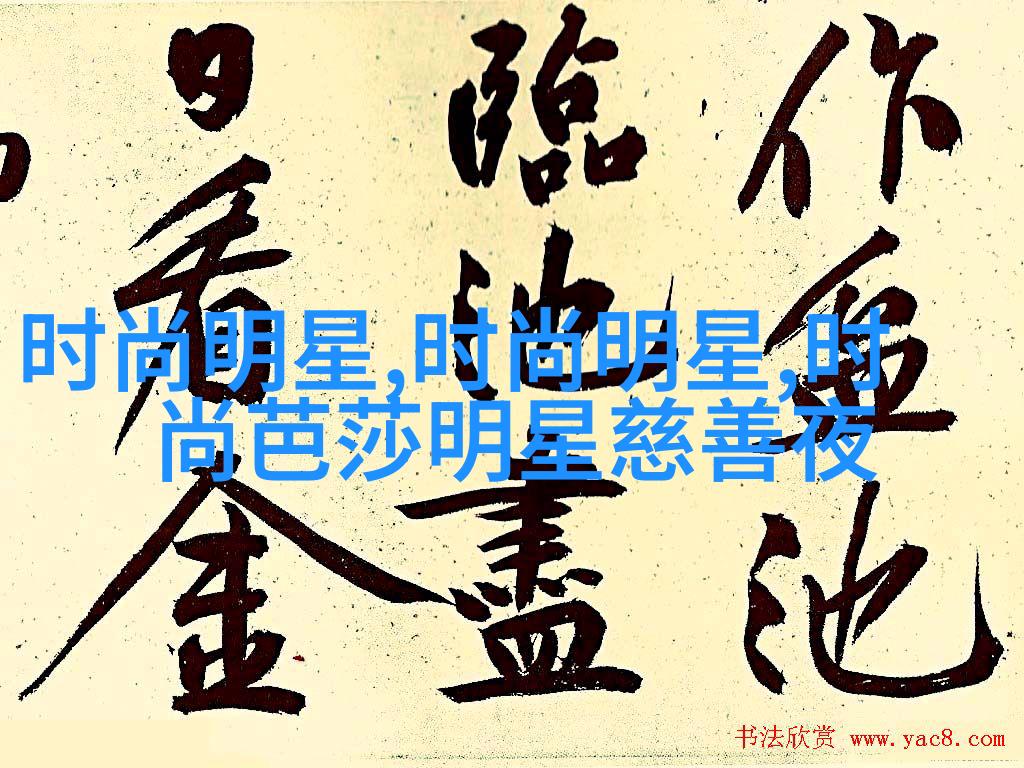 作盆池
臨池盡
日看金
时尚明星,时尚明星,时
尚芭莎明星慈善夜
书法欣赏 www.yac8.com